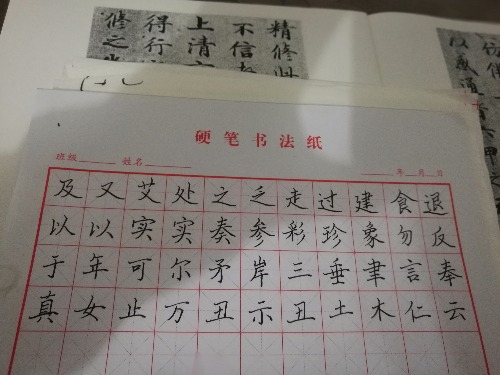 精修
不信
上清
得行
修之
硬笔书法纸
班级 姓名 年 月 日
及又艾处之乏走过建食退
以以实实奏参彩珍象勿反
于年可尔矛岸三垂聿言奉
真女止万丑示丑土木仁云